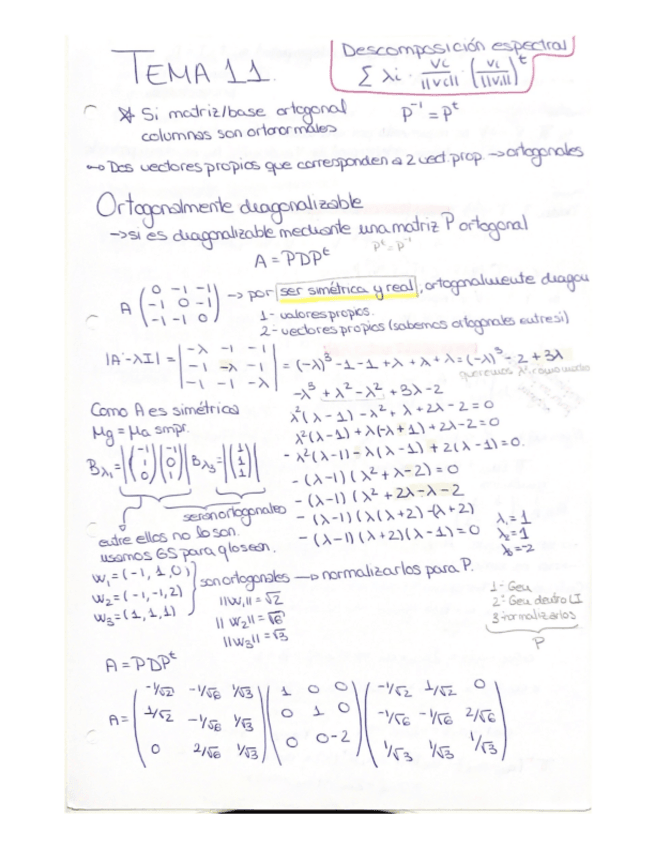 Descomposición espectral
TEMA 11.
∑ λi · vi/||vi|| · (vi/||vi||)^t
* Si matriz/base ortogonal P^-1 = P^t
columnas son ortonormales
→ Dos vectores propios que corresponden a 2 vect. prop. → ortogonales
Ortogonalmente diagonalizable
→ si es diagonalizable mediante una matriz P ortogonal
P^t = P^-1
A = PDP^t
A (0 -1 -1 / -1 0 -1 / -1 -1 0) → por ser simétrica y real, ortogonalmente diagon
1- valores propios.
2- vectores propios (sabemos ortogonales entre sí)
|A-λI| = |-λ -1 -1 / -1 -λ -1 / -1 -1 -λ| = (-λ)^3 -1 -1 + λ + λ + λ = (-λ)^3 - 2 + 3λ
queremos
-λ^3 + λ^2 - λ^2 + 3λ - 2
Como A es simétrica
λ^2(λ-1) - λ^2 + λ + 2λ - 2 = 0
μg = μa smpr.
λ^2(λ-1) + λ(-λ+1) + 2λ - 2 = 0
Bλ1 = |(-1 1 0) (-1 0 1)| Bλ3 = |(1 1 1)|
- λ^2(λ-1) - λ(λ-1) + 2(λ-1) = 0.
- (λ-1)(λ^2 + λ - 2) = 0
- (λ-1)(λ^2 + 2λ - λ - 2
serán ortogonales
- (λ-1)(λ(λ+2) - (λ+2)
entre ellos no lo son.
- (λ-1)(λ+2)(λ-1) = 0
λ1 = 1
λ2 = 1
λ3 = -2
usamos GS para q lo sean.
w1 = (-1, 1, 0)
w2 = (-1, -1, 2)
w3 = (1, 1, 1)
son ortogonales → normalizarlos para P.
||w1|| = √2
||w2|| = √6
||w3|| = √3
1- Gen
2- Gen dentro LI
3- normalizarlos
P
A = PDP^t
A = (-1/√2 -1/√6 1/√3 / 1/√2 -1/√6 1/√3 / 0 2/√6 1/√3) (1 0 0 / 0 1 0 / 0 0 -2) (-1/√2 1/√2 0 / -1/√6 -1/√6 2/√6 / 1/√3 1/√3 1/√3)